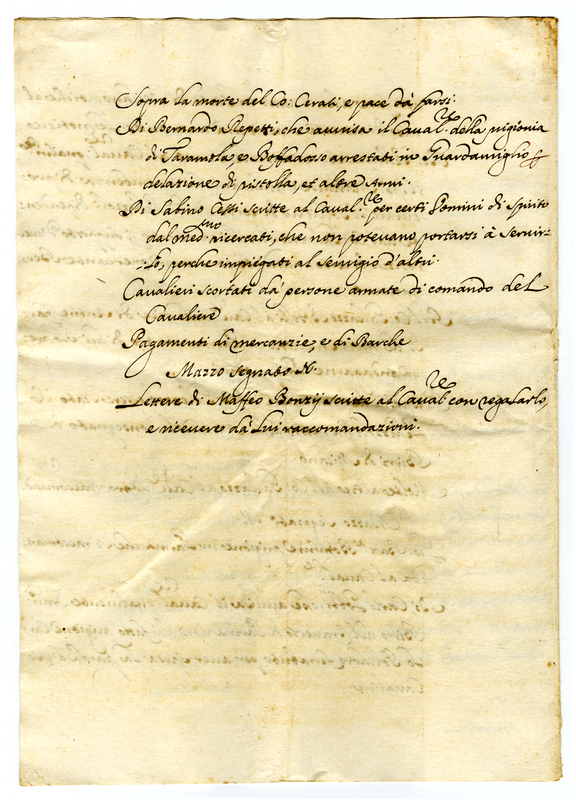 Sopra la morte del Co: Cerati, e pace dà farsi.
Di Bernardo Repetti, che avvisa il Caval.re della prigionia
di Taramola, e Boffadosso arrestati in Guardamiglio p
delazione di pistolla, et altre Armi.
Di Sabino Cessi scritte al Caval.re per certi Homini di Spirito
dal med.mo ricercati, che non potevano, portarsi à Servir-
-lo, perche impiegati al Servigio d'altri
Cavalieri scortati dà persone armate di comando del
Cavaliere
Pagamenti di mercanzie, e di Barche
Mazzo Segnato N.
Lettere di Maffeo Bonzij scritte al Caval.re con regalarlo,
e ricevere dà Lui raccomandazioni.